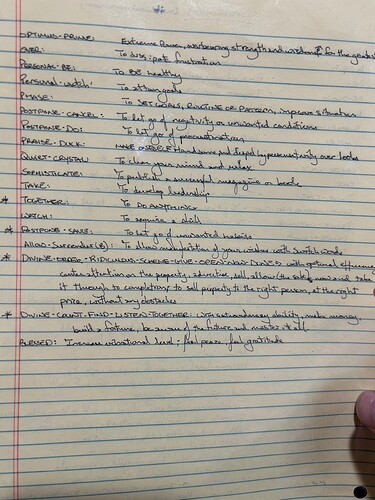 OPTIMUS-PRIME: Extreme Power, unwavering strength and wisdom for the greater
OVER: To dissipate frustration
PERSONAL-BE: To BE healthy
Personal-watch: To attain goals
PHASE: To SET GOALS, ROUTINE OR PATTERN, improve situation
POSTPONE-CANCEL: To let go of negativity or unwanted conditions
POSTPONE-DO: To let go of procrastination
PRAISE-DUCK: MAKE ONESELF Handsome and
QUIET-CRYSTAL: To clear your mind and relax
SOPHISTICATE: To publish a successful magazine or book
TAKE: To develop leadership
* TOGETHER: To DO ANYTHING
WATCH: To acquire a skill
* POSTPONE-SAVE: To let go of unwanted
Allow-Surrender(e): To allow of your wishes with switch words
* DIVINE-ORDER-RIDICULOUS-SCHEME-GIVE- with optimal efficiency,
center attention on the property, advertise, sell, allow the
it through to completion; to sell property to the right person, at the right
price, without any obstacles
* DIVINE-COUNT-FIND-LISTEN-TOGETHER: With extraordinary ability, make money,
build a fortune, be aware of the future and master it all
BLESSED: Increase vibrational level; feel peace, feel gratitude